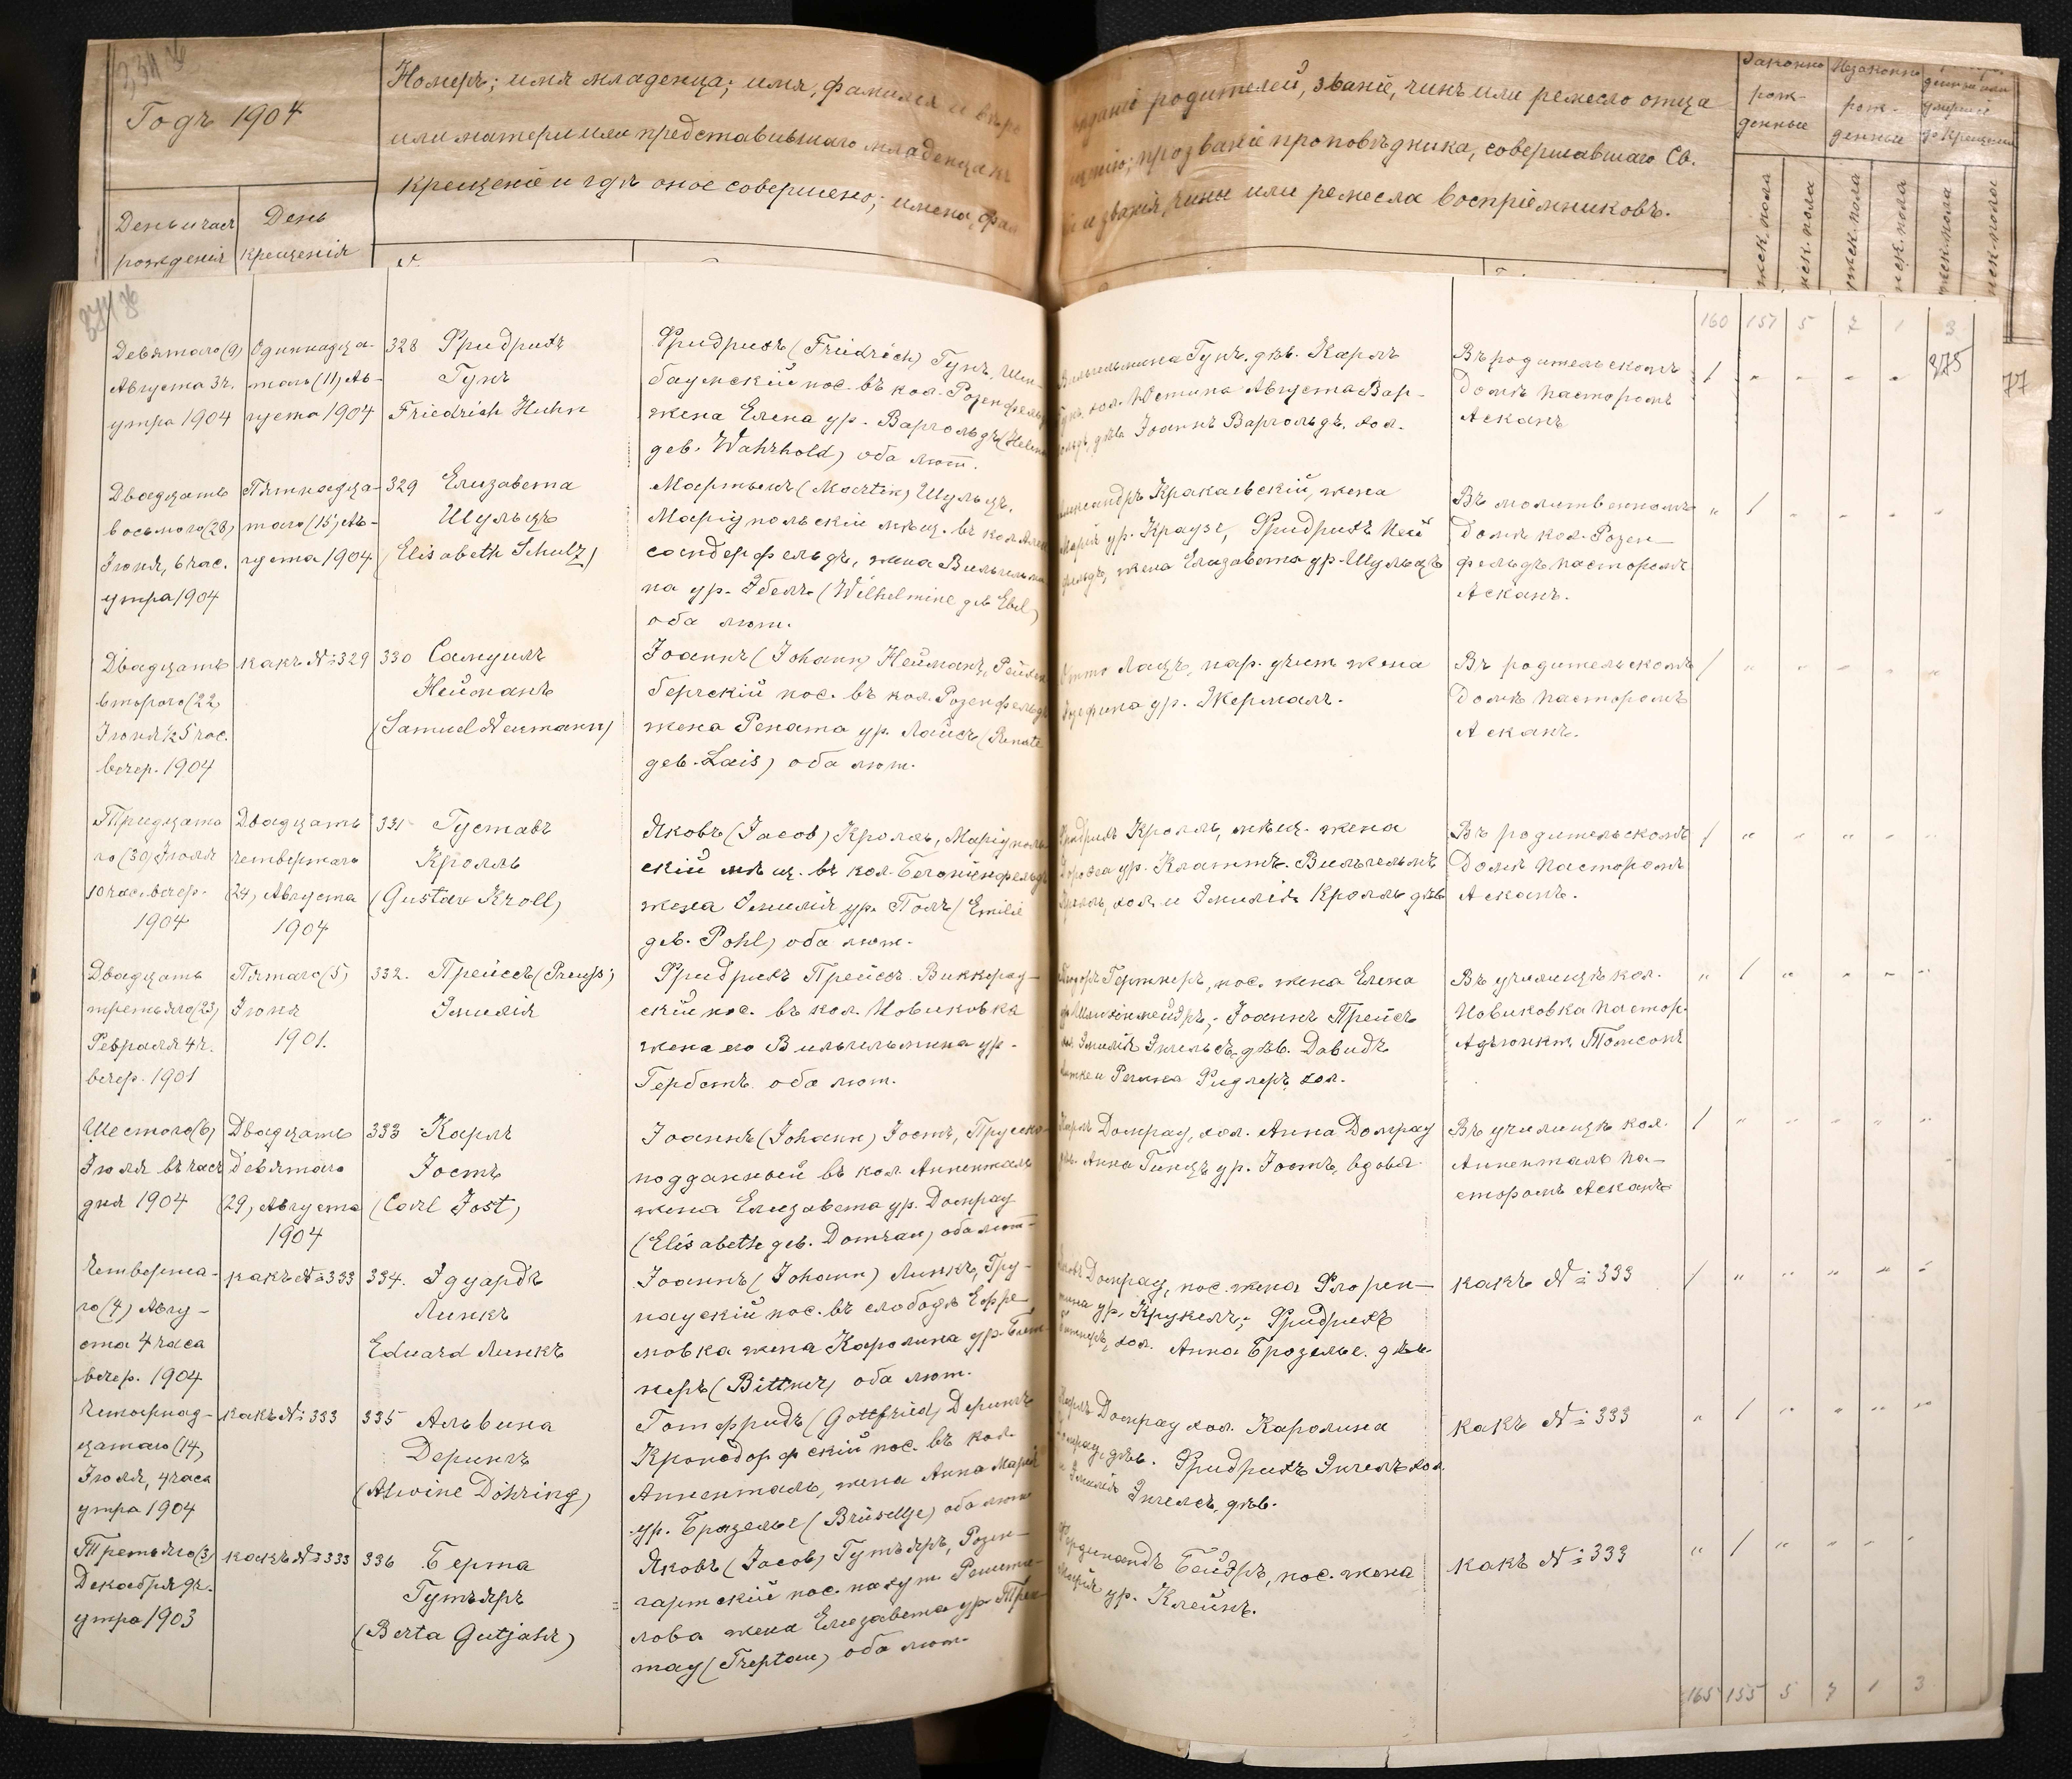 Годъ 1904
Номеръ; имя младенца; имя, фамилія и вѣро
или матери или представившаго младенца къ
крещеніе и гдѣ оное совершено; имена, фам
День и часъ рожденія
День крещенія
родителей, званіе, чинъ или ремесло отца
прозваніе проповѣдника, совершавшаго Св.
и званія, чины или ремесла воспріемниковъ.
Законно рож-
денные
Незаконно рож-
денные
до крещенія
Девятаго (9)
Августа 3 ч.
утра 1904
Одиннадца-
таго (11) Ав-
густа 1904
328 Фридрихъ
Гунъ
Friedrich Huhn
Фридрихъ (Friedrich) Гунъ,
баумскій пос. въ кол. Розенфельдъ
жена Елена ур. Варгольдъ (Helene
геб. Wahrhold) оба лют.
Вильгельмина Гунъ, дѣв. Карлъ
кол. Юстина Августа Вар-
гольдъ, дѣв. Іоаннъ Варгольдъ, кол.
Въ родительскомъ
домѣ пасторомъ
Асканъ
Двадцать
восьмого (28)
Іюня, 6 час.
утра 1904
Пятнадца-
таго (15) Ав-
густа 1904
329 Елизавета
Шульцъ
(Elisabeth Schulz)
Мартынъ (Martin) Шульцъ,
Маріупольскій мѣщ. въ кол. Алек
сандерфельдъ, жена Вильгельми
на ур. Эбель (Wilhelmine геб. Ebel)
оба лют.
Александръ Кракаевскій, жена
Марія ур. Краузе, Фридрихъ Ней
фельдъ, жена Елизавета ур. Шульцъ
Въ молитвенномъ
домѣ кол. Розен-
фельдъ пасторомъ
Асканъ.
Двадцать
второго (22)
Іюня ½5 час.
вечер. 1904
какъ № 329
330 Самуилъ
Нейманъ
(Samuel Neumann)
Іоаннъ (Johann) Нейманъ, Рейхен
бергскій пос. въ кол. Розенфельдъ
жена Рената ур. Лайсъ (Renate
геб. Lais) оба лют.
Отто Лацъ, нар. учит. жена
ур. Жермаль.
Въ родительскомъ
домѣ пасторомъ
Асканъ.
Тридцата
го (30) Іюля
10 час. вечер.
1904
Двадцать
четвертаго
(24) Августа
1904
331 Густавъ
Кролль
(Gustav Kroll)
Яковъ (Jacob) Кролль, Маріуполь
скій мѣщ. въ кол.
жена Эмилія ур. Поль (Emilie
геб. Pohl) оба лют.
Фридрихъ Кролль, мѣщ. жена
Доротеа ур. Клаттъ. Вильгельмъ
Кролль, кол. и Эмилія Кролль дѣв.
Въ родительскомъ
домѣ пасторомъ
Асканъ.
Двадцать
третьяго (23)
Февраля 4 ч.
вечер. 1901
Пятаго (5)
Іюня
1901.
332. Прейссъ (Preuss)
Эмилія
Фридрихъ Прейссъ. Виккерау-
скій пос. въ кол. Новиковка
жена его Вильгельмина ур.
Гербстъ. оба лют.
Гертнеръ, пос. жена Елена
Іоаннъ Прейсъ
Эмилія Энгельсъ дѣв. Давидъ
Регина Фидлеръ кол.
Въ училищѣ кол.
Новиковка пастор.
Адъюнкт. Томсонъ
Шестого (6)
Іюля въ часъ
дня 1904
Двадцать
девятаго
(29) Августа
1904
333 Карлъ
Іостъ
(Carl Jost)
Іоаннъ (Johann) Іостъ, Прусско-
подданный въ кол. Анненталь
жена Елизавета ур. Домрау
(Elisabeth геб. Domrau) оба лют.
Карлъ Домрау, кол. Анна Домрау
дѣв. Анна Гинцъ ур. Іостъ, вдова.
Въ училищѣ кол.
Анненталь па-
сторомъ Асканъ
Четверта-
го (4) Авгу-
ста 4 часа
вечер. 1904
какъ № 333
334. Эдуардъ
Линкъ
Eduard Линкъ
Іоаннъ (Johann) Линкъ, Гру-
науский пос. въ слободѣ Ефре-
мовка жена Каролина ур. Битт-
неръ (Bittner) оба лют.
Домрау, пос. жена Флорен-
тина ур. Крукель; Фридрихъ
кол. Анна Брозелье. дѣв.
какъ № 333
Четырнад-
цатаго (14)
Іюля, 4 часа
утра 1904
какъ № 333
335 Альвина
Дерингъ
(Alwine Döhring)
Готфридъ (Gottfried) Дерингъ
Кронсдорфскій пос. въ кол.
Анненталь, жена Анна Марія
ур. Бразелье (Brüsellje) оба лют.
Карлъ Домрау кол. Каролина
Домрау, дѣв. Фридрихъ Энгель кол.
и Эмилія Энгельсъ, дѣв.
какъ № 333
Третьяго (3)
Декабря 9 ч.
утра 1903
какъ № 333
336 Берта
Гутъяръ
(Berta Gutjahr)
Яковъ (Jacob) Гутъяръ, Розен-
гартскій пос. на хут. Решети-
лова жена Елизавета ур. Треп-
тау (Treptau) оба лют.
Фердинандъ Бейеръ, пос. жена
Марія ур. Клейнъ.
какъ № 333
160 151 5 7 1 3
275
77
165 155 5 7 1 3